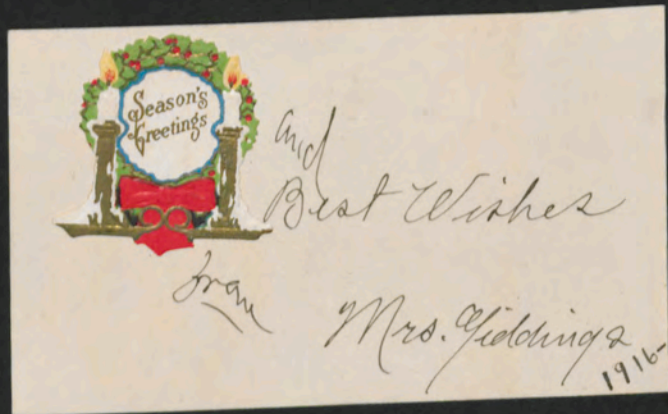 Season's
Greetings
and
Best Wishes
from
Mrs. Giddings
1916-